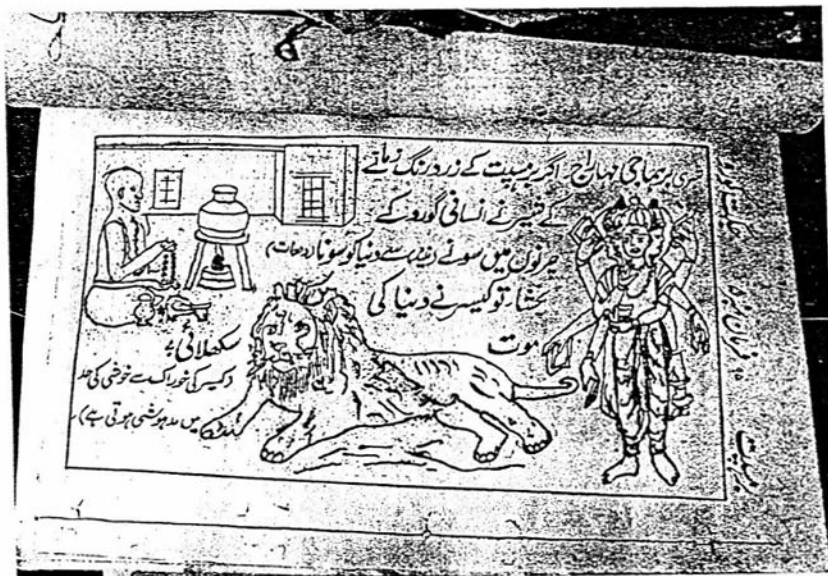 سری برہما جی مہاراج۔ اگر برہسپت کے زرد رنگ زمانے
کے شیر نے انسانی گورو کے
چرنوں میں سونے (نیند) سے دنیا کو سونا (دھات)
بخشا، تو کیسر نے دنیا کی
موت
سکھلائی۔
(کیسر کی خوراک سے خوشی کی حد
میں مدہوشی ہوتی ہے)۔